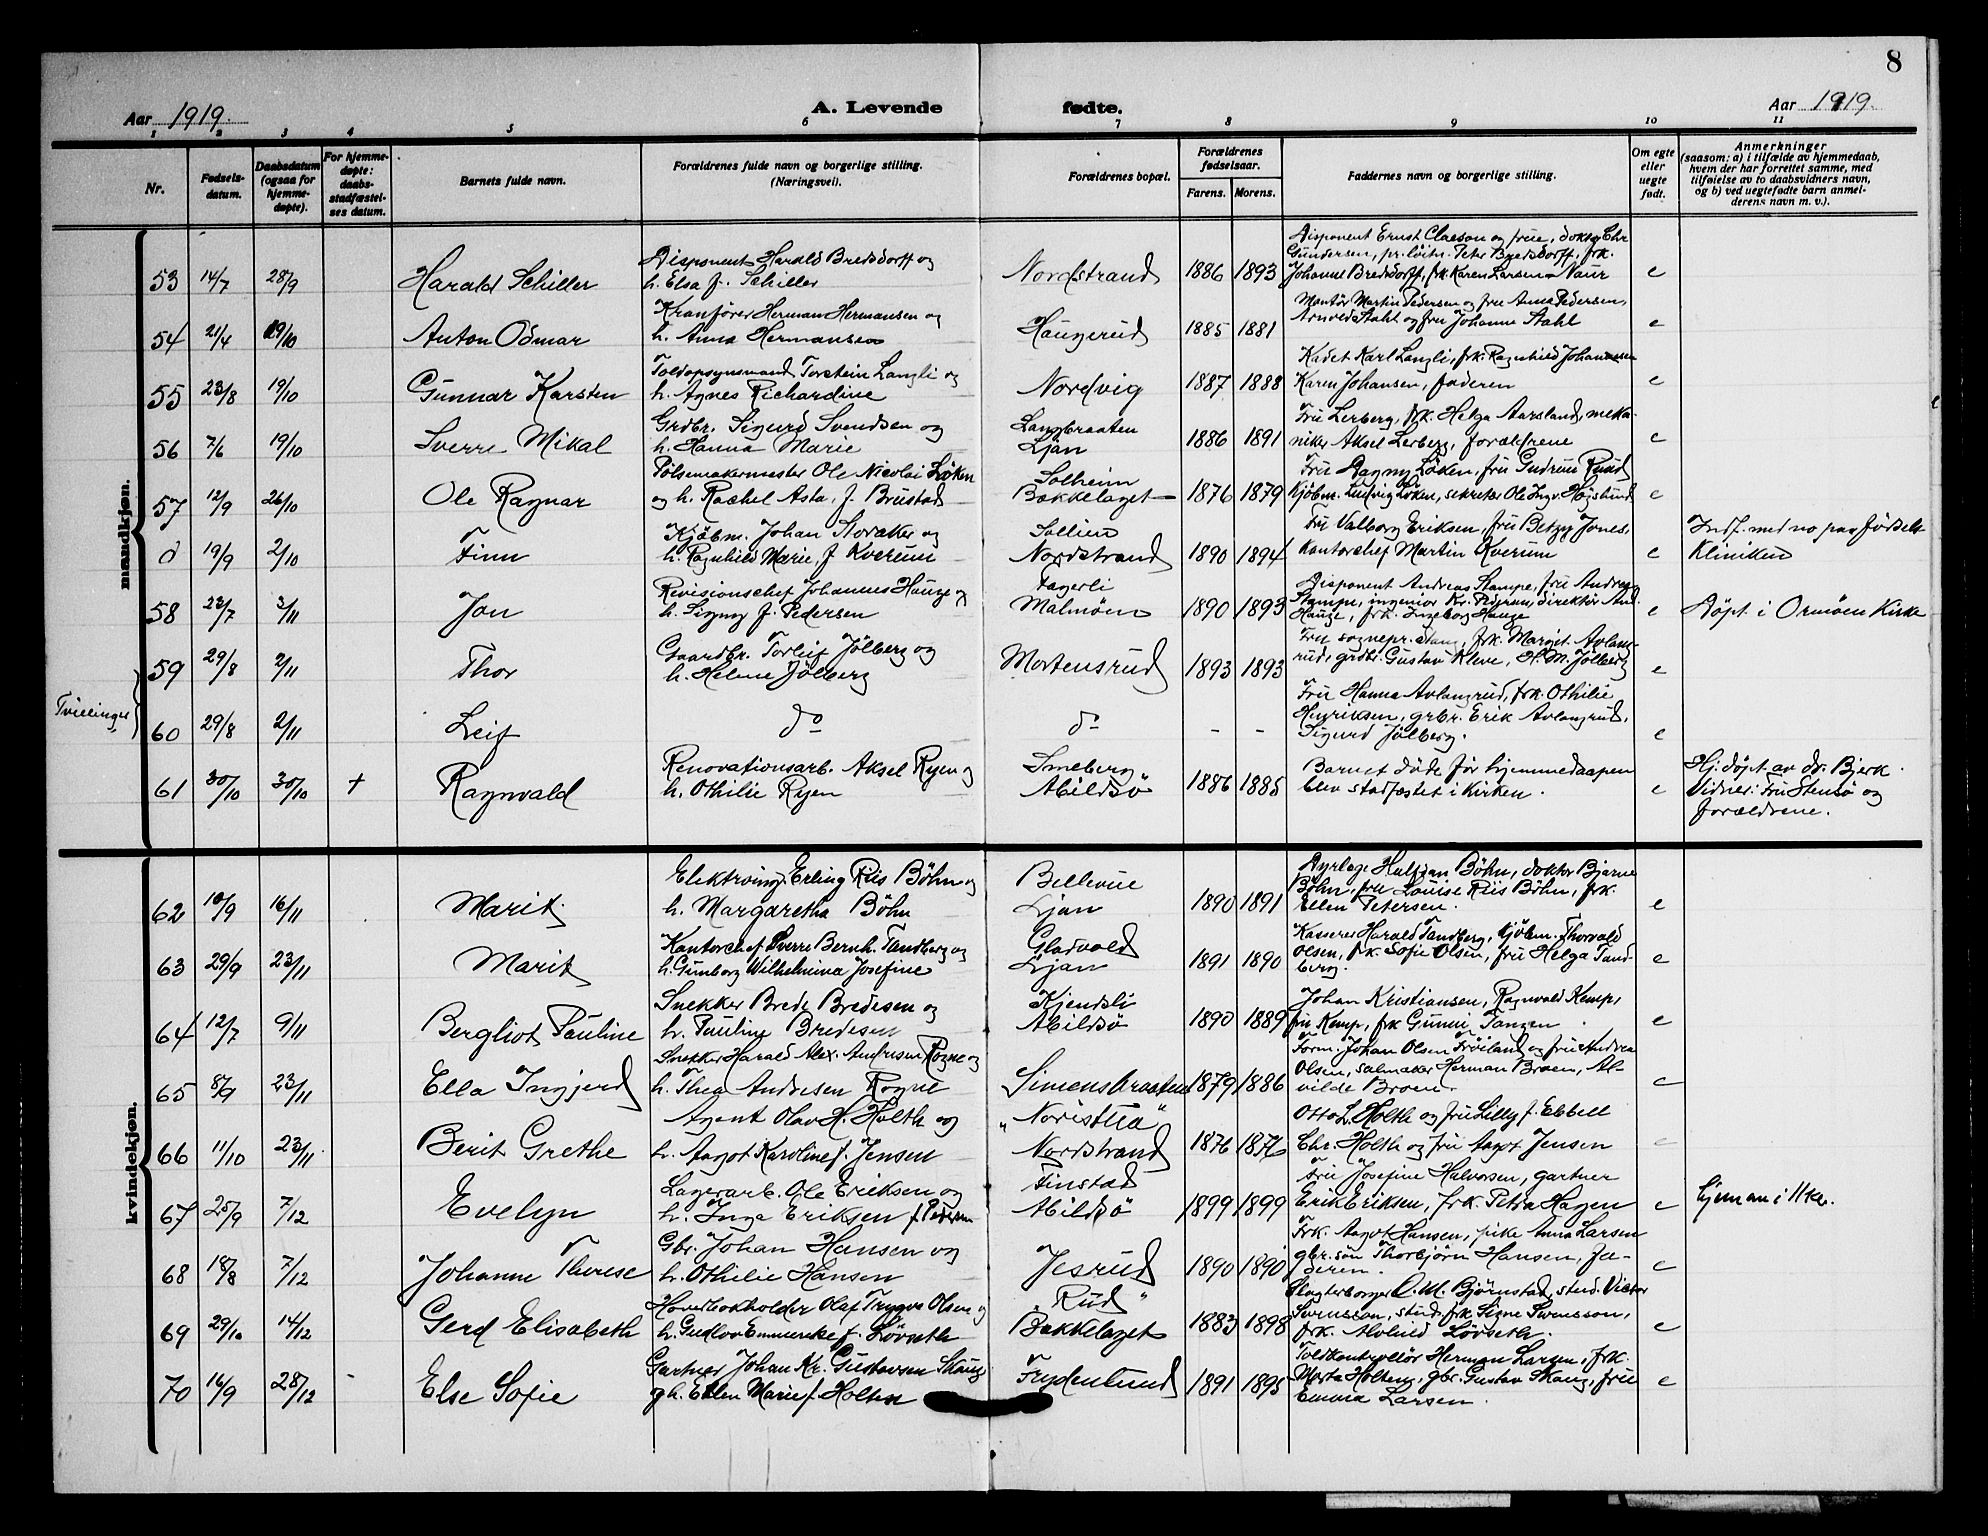 8
Aar 1919. A. Levende fødte. Aar 1919.
1 2 3 4 5 6 7 8 9 10 11
Nr.
Fødsels-
datum.
Daabsdatum
(ogsaa for
hjemme-
døpte).
For hjemme-
døpte:
daabs-
stadfæstel-
ses datum.
Barnets fulde navn.
Forældrenes fulde navn og borgerlige stilling.
(Næringsvei).
Forældrenes bopæl.
Forældrenes
fødselsaar.
Farens. Morens.
Faddernes navn og borgerlige stilling.
Om egte
eller
uegte
født.
Anmerkninger
(saasom: a) i tilfælde av hjemmedaab,
hvem der har forrettet samme, med
tilføielse av to daabsvidners navn,
og b) ved uegtefødte barn anmel-
derens navn m. v.).
mandkjøn.
53 14/7 28/9 Harald Schiller
Disponent Harald Bredsdorff og
h. Elsa f. Schiller
Nordstrand 1886 1893
Disponent Ernst Claeson og frue, doktor Chr
Gundersen, pr.løitn. Peter Bredsdorff, frk.
Johanne Bredsdorff, frk. Karen Larsen Naur
e
54 21/4 19/10 Anton Odmar
Kranfører Herman Hermansen og
h. Anna Hermansen
Haugerud 1885 1881
Montør Martin Pedersen og fru Anna Pedersen,
Arnold Stahl og fru Johanne Stahl
e
55 23/8 19/10 Gunnar Karsten
Toldopsynsmand Torstein Langli og
h. Agnes Richardine
Nordvig 1887 1888
Kadet Karl Langli, frk. Ragnhild Johannesen
Karen Johansen, faderen
e
56 7/6 19/10 Sverre Mikal
Grdbr. Sigurd Svendsen og
h. Hanna Marie
Langbraaten
Ljan 1886 1891
Fru Lerberg, frk. Helga Aarsland, meka-
niker Aksel Lerberg, forældrene
e
57 12/9 26/10 Ole Ragnar
Pølsemakermester Ole Nicolai Løken
og h. Rachel Asta, f. Brustad
Solheim
Bækkelaget 1876 1879
Fru Dagny Løken, fru Gudrun Rund
Kjøbm. Ludvig Løken, sekretær Ole Ingv. Høgslund
e
d 19/9 2/10 Finn
Kjøbm. Johan Noraker og
h. Ragnhild Marie, f. Kverum
Sollien
Nordstrand 1890 1894
Fru Valborg Eriksen, fru Betzy Jones,
Kontorchef Martin Kverum
e
Indf. med no paa fødsels
Kliniken
58 23/7 3/11 Jon
Revisionschef Johannes Hauge og
h. Signy f. Pedersen
Fagerli
Malmøen 1890 1893
Disponent Andreas Stampe, fru Andrea
Stampe, ingeniør Kr. Pedersen, direktør And.
Hauge, frk. Ingeborg Hauge
e
Døpt i Ormøen Kirke
59 29/8 2/11 Thor
Gaardbr. Torleif Jølberg og
h. Helene Jølberg
Mortensrud 1893 1893
Fru sognepr. Stang, frk. Margit Avlang-
rud, grdbr. Gustav Kleve, H.M. Jølberg
e
Tvillinger
60 29/8 2/11 Leif
do
do - -
Fru Hanna Avlangrud, frk. Othilie
Henriksen, grbr. Erik Avlangrud,
Sigurd Jølberg.
e
61 30/10 30/10 + Ragnvald
Renovationsarb. Aksel Ryen og
h. Othilie Ryen
Smeberg
Abildsö 1886 1885
Barnet døde før hjemmedaapen
blev stadfæstet i kirken.
e
Hj. døpt av dr. Bjerk.
Vidner: Fru Stensö og
forældrene.
kvindekjøn.
62 10/9 16/11 Marit
Elektroing. Erling Riis Bøhn og
h. Margaretha Bøhn
Bellevue
Ljan 1890 1891
Dyrlæge Halfdan Bøhn, doktor Bjarne
Bøhn, fru Louise Riis Bøhn, frk.
Ellen Petersen.
e
63 29/9 23/11 Marit
Kontorchef Sverre Bernh. Tandberg og
h. Gunborg Wilhelmina Josefine
Gladvold
Ljan 1891 1890
Kasserer Harald Tandberg, kjøbm. Thorvald
Olsen, frk. Sofie Olsen, fru Helga Tand-
berg.
e
64 12/7 9/11 Bergliot Pauline
Snekker Brede Bredesen og
h. Pauline Bredesen
Kjendsli
Abildsö 1890 1889
Johan Kristiansen, Ragnvald Kemp,
fru Kemp, frk Gunni Tangen.
e
65 8/9 23/11 Ella Ingjerd
Snekker Harald Alex. Andresen Rogne og
h. Thea Andresen Rogne
Simensbraaten 1879 1886
Form. Johan Olsen Frøiland og fru Andrea
Olsen, salmaker Herman Broen, Al-
vilde Broen.
e
66 11/10 23/11 Berit Grethe
Agent Olav H. Holth og
h. Aagot Karoline f. Jensen
"Noristua"
Nordstrand 1876 1876
Otto L. Holth og fru Lilly f. Ebbell
Chr. Holth og fru Aagot Jensen
e
67 25/9 7/12 Evelyn
Lagerarb. Ole Eriksen og
h. Inga Eriksen f. Pedersen
Finstad
Abildsö 1899 1899
Fru Josefine Halvorsen, gartner
Erik Eriksen, frk. Petra Hagen
e
68 18/8 7/12 Johanne Therese
Gbr. Johan Hansen og
h. Othilie Hansen
Jesrud 1890 1890
Frk. Aagot Hansen, pike Anna Larsen
gbr.søn Thorbjørn Hansen, fa-
deren.
e
69 29/10 14/12 Gerd Elisabeth
Hovedbokholder Olaf Trygve Olsen og
h. Gudlov Emmerike f. Løvseth
"Rud"
Bækkelaget 1883 1898
Slagterborger O.M. Bjørnstad, stud. Victor
Svensson, stud. frk. Signe Svensson,
frk. Alvhild Løvseth.
e
70 16/9 28/12 - Else Sofie
Gartner Johan Kr. Gustavsen Skaug
og h. Ellen Marie f. Holten
Frydenlund 1891 1895
Toldkontrollør Herman Larsen, frk.
Marta Holten, gbr. Gustav Skaug, fru
Emma Larsen.
e